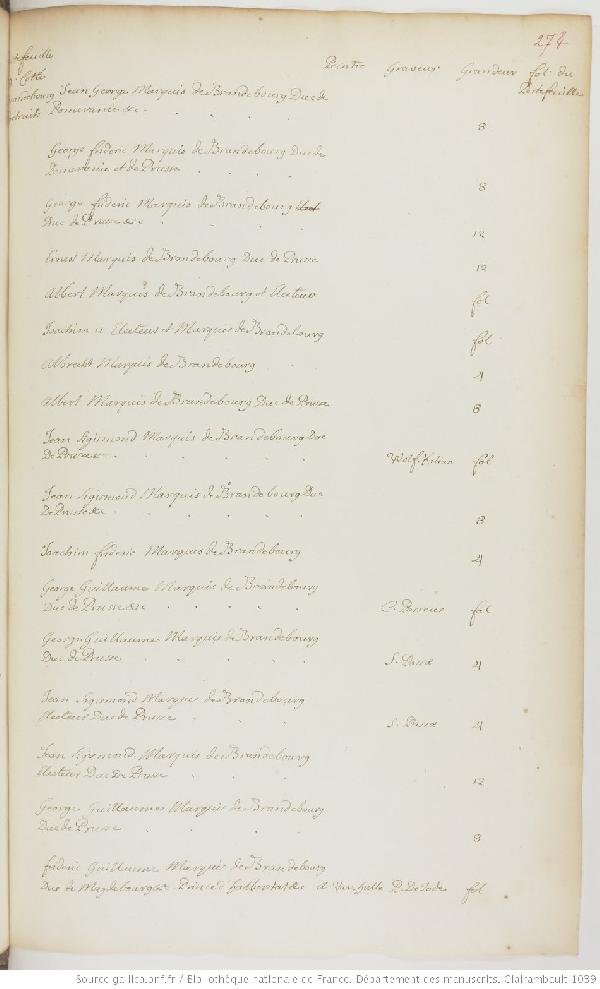 274
Peintre Graveur Grandeur fol. du
Portefeuille
Jean George Marquis de Brandebourg Duc de
Pomeranie &c. 8
George frideric Marquis de Brandebourg Duc de
et de Prusse 8
George frideric Marquis de Brandebourg
Duc de Prusse &c 12
Ernest Marquis de Brandebourg Duc de Prusse 12
Albert Marquis de Brandebourg et Electeur fol
Joachim Electeur et Marquis de Brandebourg fol
Albrecht Marquis de Brandebourg 4
Albert Marquis de Brandebourg Duc de Prusse 8
Jean Sigismond Marquis de Brandebourg Duc
De Prusse &c. Wolf. Kilian fol
Jean Sigismond Marquis de Brandebourg Duc
De Prusse &c. 8
Joachim frideric Marquis de Brandebourg 4
George Guillaume Marquis de Brandebourg
Duc de Prusse &c fol
George Guillaume Marquis de Brandebourg
Duc de Prusse S. Passe 4
Jean Sigismond Marquis de Brandebourg
Electeur Duc de Prusse S. Passe 4
Jean Sigismond Marquis de Brandebourg
Electeur Duc De Prusse 12
George Guillaume Marquis de Brandebourg
Duc de Prusse 8
frideric Guillaume Marquis de Brandebourg
Duc de Magdebourg &c Prince d'halberstat &c A Van hulle P. De Jode fol
Source gallica.bnf.fr / Bibliothèque nationale de France. Département des manuscrits. Clairambault 1039